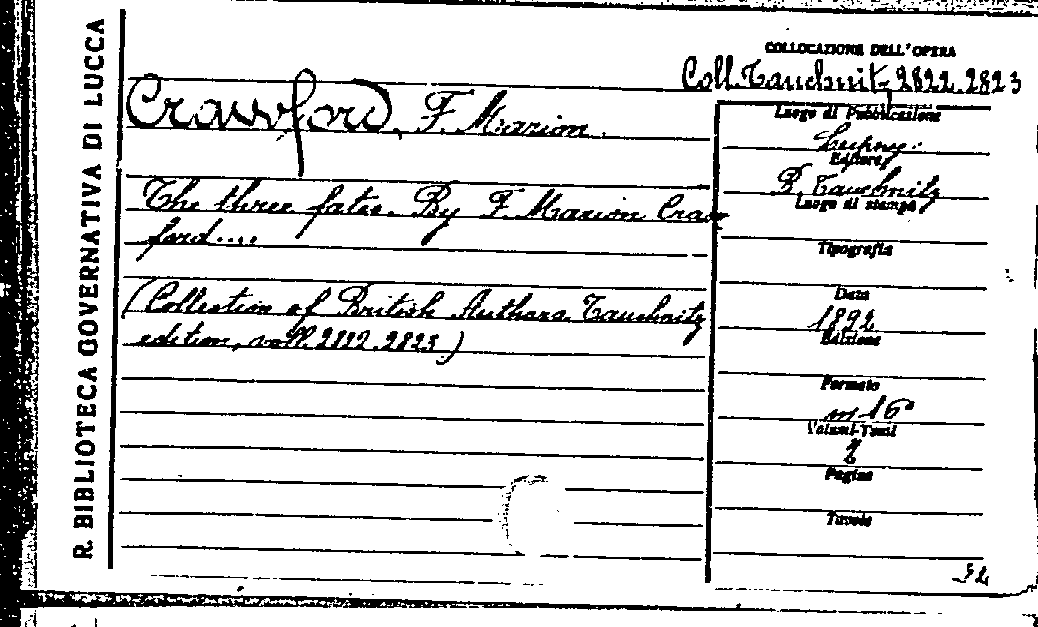 R. BIBLIOTECA GOVERNATIVA DI LUCCA
COLLOCAZIONE DELL'OPERA
Coll. Tauchnitz, 2822.2823
Crawford, F. Marion.
The three fates. By F. Marion Craw
ford....
(Collection of British Authors Tauchnitz
edition, voll. 2822.2823)
Luogo di Pubblicazione
Editore
B. Tauchnitz
Luogo di stampa
Tipografia
Data
1892
Edizione
Formato
in 16°
Volumi-Tomi
2
Pagine
Tavole